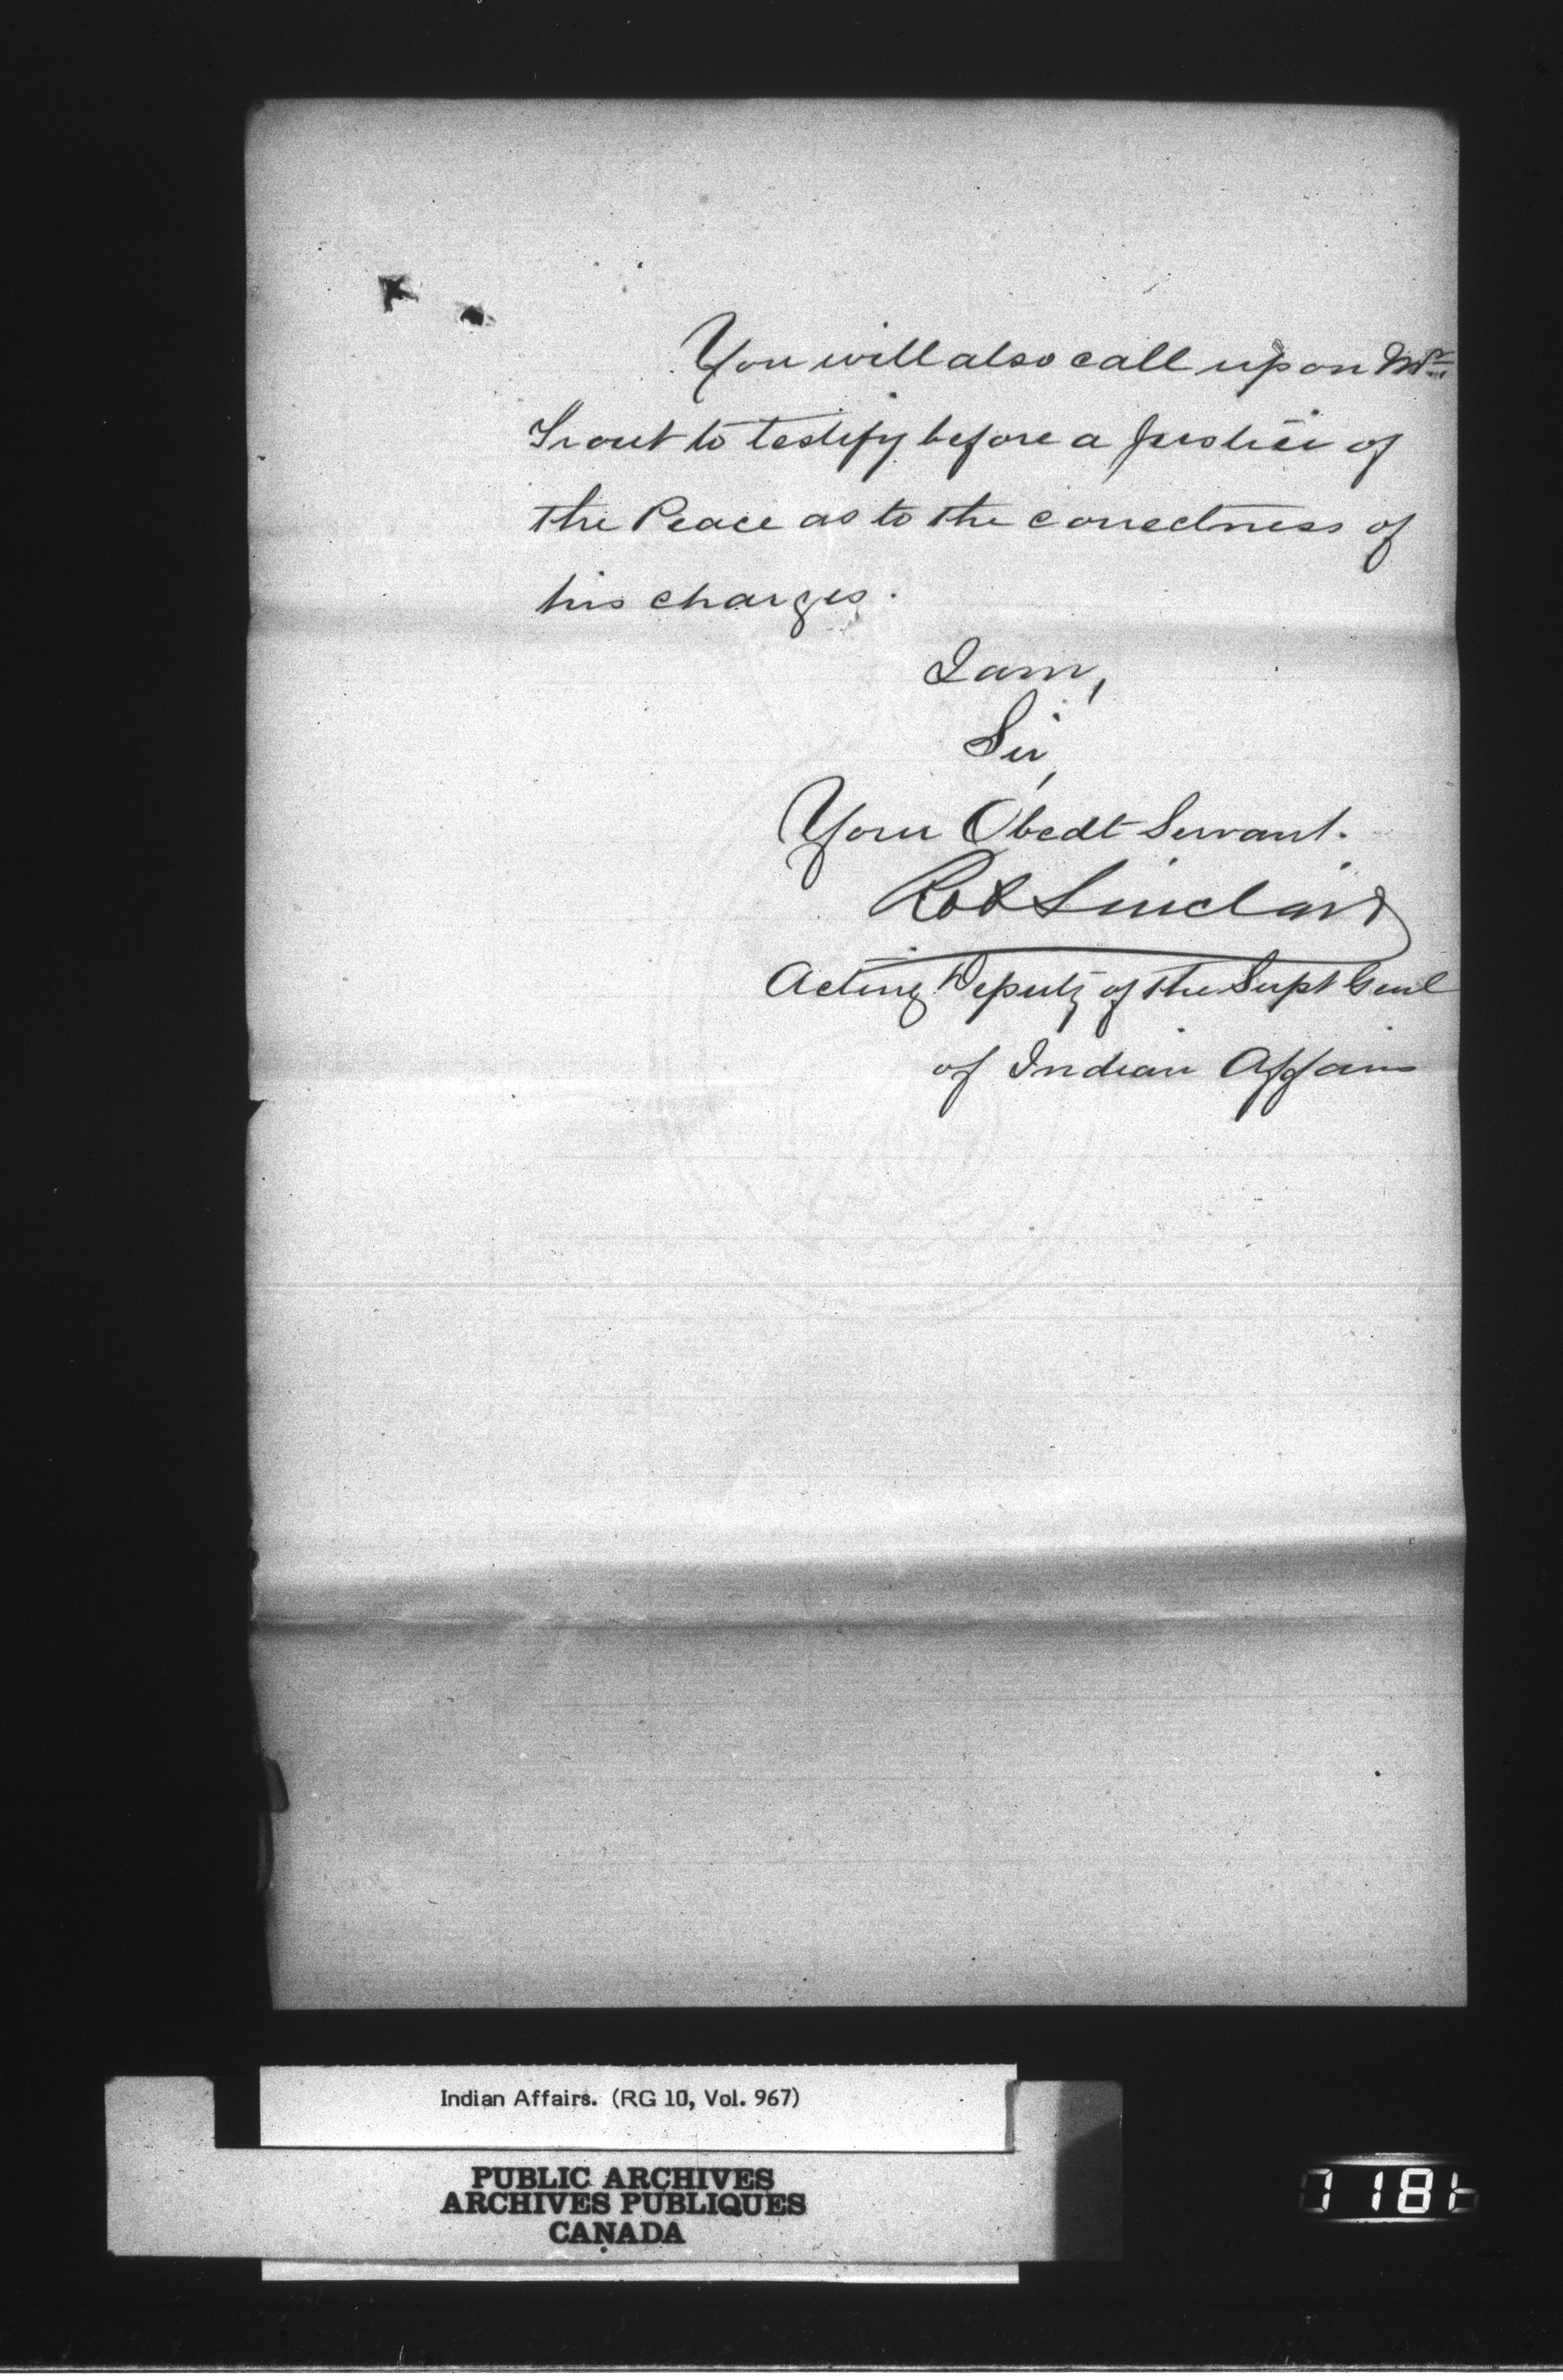 You will also call upon Mr.
Trout to testify before a Justice of
the Peace as to the correctness of
his charges.
I am,
Sir,
Your Obedt Servant.
Rob Sinclair
Acting Deputy of the Supt Genl
of Indian Affairs
Indian Affairs. (RG 10, Vol. 967)
PUBLIC ARCHIVES
ARCHIVES PUBLIQUES
CANADA